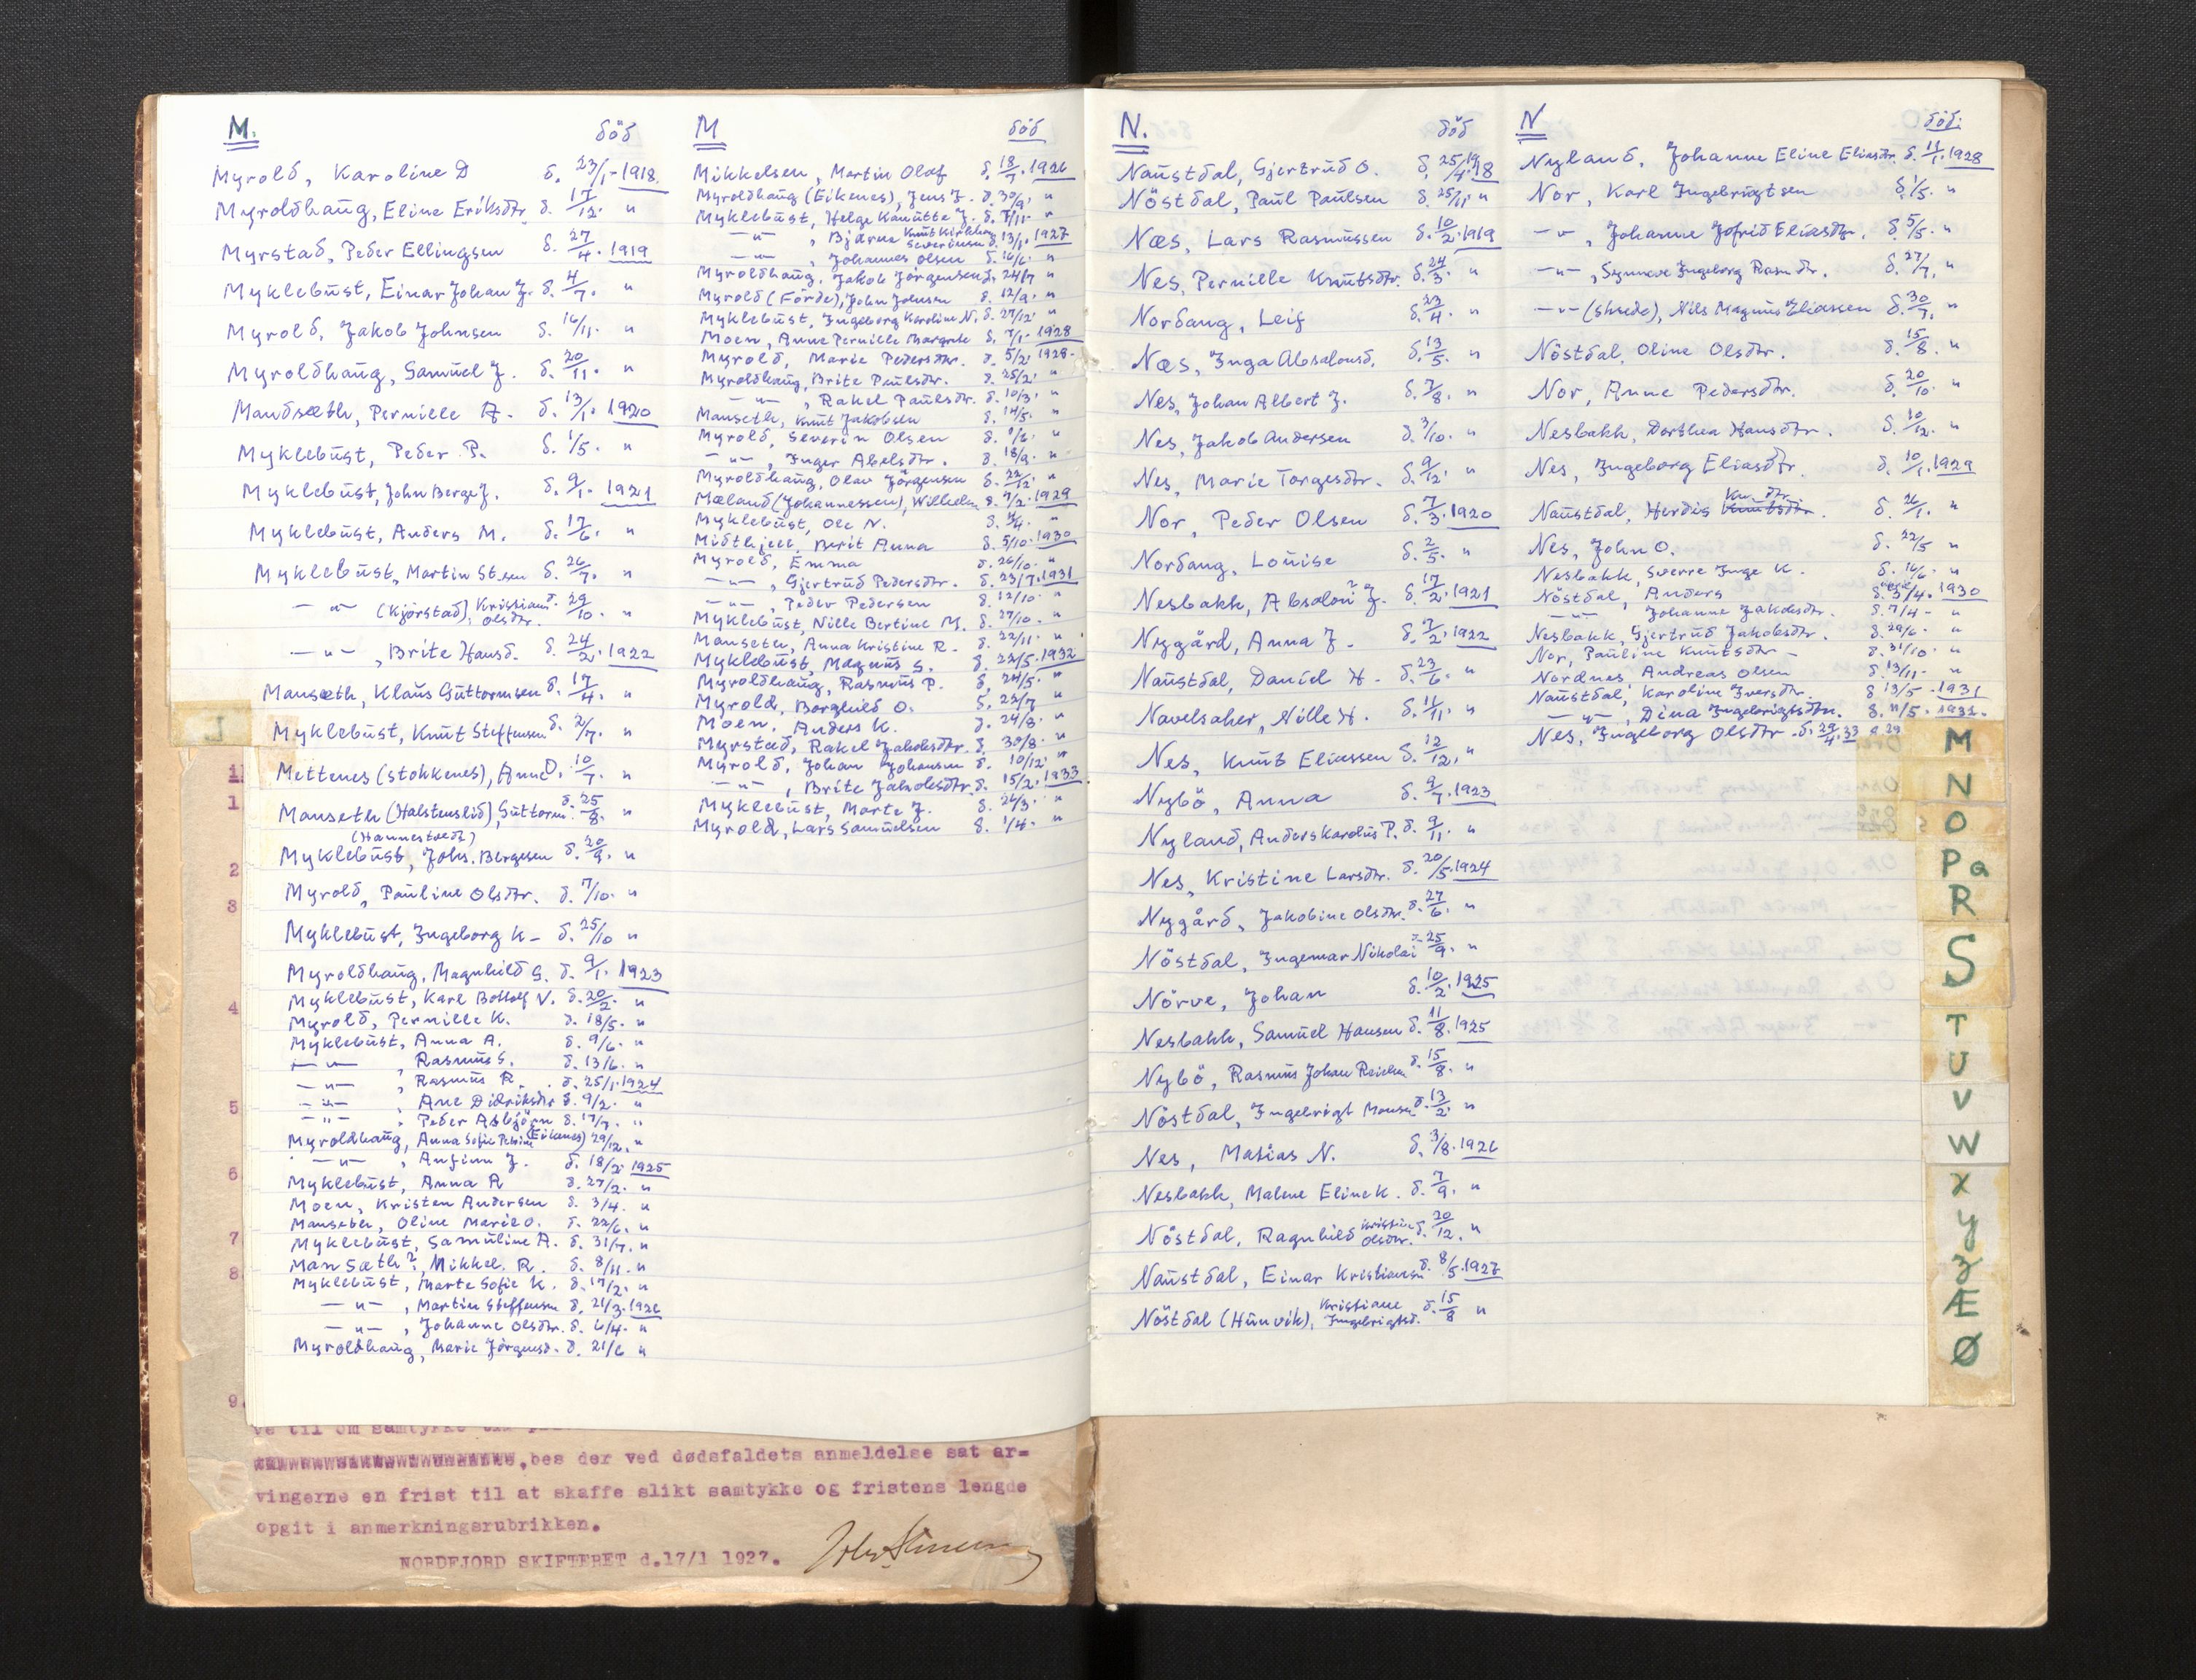 M. död
Myrold, Karoline D d. 23/1-1918
Myroldhaug, Eline Eriksdtr. d. 17/12. "
Myrstad, Peder Ellingsen d. 27/4. 1919
Myklebust, Einar Johan J. d. 4/7. "
Myrold, Jakob Johnsen d. 16/11. "
Myroldhaug, Samuel J. d. 20/11. "
Mandsæth, Pernille A. d. 13/1. 1920
Myklebust, Peder P. d. 1/5. "
Myklebust, John Berge J. d. 9/1. 1921
Myklebust, Anders M. d. 17/6. "
Myklebust, Martin St.sen d. 26/7. "
—"— (Kjörstad), Kristiane Olsdtr. d. 29/10. "
—"—, Brite Hansd. d. 24/2. 1922
Mansæth, Klaus Guttormsen d. 17/4. "
Myklebust, Knut Steffensen d. 2/7. "
Mettenes (Stokkenes), Anne O. 10/7. "
Manseth (Halstenslid), Guttorm d. 25/8. "
(Hannestvedt)
Myklebust, Johs. Bergesen d. 20/9. "
Myrold, Pauline Olsdtr. d. 7/10. "
Myklebust, Ingeborg K- d. 25/10 "
Myroldhaug, Magnhild S. d. 9/1. 1923
Myklebust, Karl Bottolf N. d. 20/2. "
Myrold, Pernille K. d. 18/5. "
Myklebust, Anna A. d. 9/6. "
—"— , Rasmus S. d. 13/6. "
—"— , Rasmus R. d. 25/1. 1924
—"— , Ane Didriksdtr d. 9/2. "
—"— , Peder Asbjörn d. 17/7. "
Myroldhaug, Anna Sofie Petrine (Eikenes) 29/12. "
—"— , Anfinn J. d. 18/2. 1925
Myklebust, Anna R d. 27/2. "
Moen, Kristen Andersen d. 3/4. "
Manseth, Oline Marie O. d. 22/6. "
Myklebust, Samuline A. d. 31/7. "
Mansæth?, Mikkel R. d. 8/11. "
Myklebust, Marte Sofie K. d. 17/2. "
—"— , Martin Steffensen d. 21/3. 1926
—"— , Johanne Olsdtr. d. 6/4. "
Myroldhaug, Marie Jörgensd. d. 21/6 "
M död
Mikkelsen, Martin Olaf d. 18/7. 1926
Myroldhaug (Eikenes), Jens J. d. 30/9. "
Myklebust, Helge Kanutte J. d. 7/11- "
—"— , Bjarne Knut Kirkhorn Severinsen d. 13/1. 1927
—"— , Johannes Olsen d. 16/6. "
Myroldhaug, Jakob Jörgensen d. 24/7 "
Myrold (Förde), John Johnsen d. 12/9. "
Myklebust, Ingeborg Karoline N. d. 27/12. "
Moen, Anne Pernille Margrete d. 7/1- 1928
Myrold, Marie Pedersdtr. d. 5/2. 1928-
Myroldhaug, Brite Paulsdtr. d. 25/2. "
—"— , Rakel Paulsdtr. d. 10/3. "
Manseth, Knut Jakobsen d. 14/5. "
Myrold, Severin Olsen d. 9/6. "
—"— , Inger Abelsdtr. d. 18/9. "
Myroldhaug, Olav Jörgensen d. 22/12. "
Mæland (Johannessen), Wilhelm d. 7/2. 1929
Myklebust, Ole N. d. 4/4. "
Midthjell, Berit Anna d. 5/10. 1930
Myrold, Emma d. 26/10. "
—"— , Gjertrud Pedersdtr. d. 23/7. 1931
—"— , Peder Pedersen d. 12/10. "
Myklebust, Nille Bertine M. d. 27/10. "
Manseth, Anna Kristine R. d. 22/11. "
Myklebust, Magnus S. d. 23/5. 1932
Myroldhaug, Rasmus P. d. 24/5. "
Myrold, Borghild O. d. 23/7 "
Moen, Anders K. d. 24/8. "
Myrstad, Rakel Jakobsdtr. d. 30/8. "
Myrold, Johan Johansen d. 10/12. "
—"— , Brite Jakobsdtr. d. 15/2. 1933.
Myklebust, Marte J. d. 26/3. "
Myrold, Lars Samuelsen d. 1/4. "
ve til om samtykke
bes der ved dødsfaldets anmeldelse sat ar=
vingerne en frist til at skaffe slikt samtykke og fristens lengde
opgit i anmerkningsrubrikken.
NORDFJORD SKIFTERET d.17/1 1927.
N. död
Naustdal, Gjertrud O. d. 25/4. 1918
Nöstdal, Paul Paulsen d. 25/11. "
Næs, Lars Rasmussen d. 10/2. 1919
Nes, Pernille Knutsdtr. d. 24/3. "
Nordang, Leif d. 23/4. "
Næs, Inga Absalonsd. d. 13/5. "
Nes, Johan Albert J. d. 7/8. "
Nes, Jakob Andersen d. 3/10. "
Nes, Marie Torgesdtr. d. 9/12. "
Nor, Peder Olsen d. 7/3. 1920
Nordang, Louise d. 2/5. "
Nesbakk, Absalon? J. d. 17/2. 1921
Nygård, Anna J. d. 7/2. 1922
Naustdal, Daniel H. d. 23/6. "
Navelsaker, Nille H. d. 11/11. "
Nes, Knut Eliassen d. 12/12. "
Nybö, Anna d. 9/7. 1923
Nyland, Anders Karolus P. d. 9/11. "
Nes, Kristine Larsdtr. d. 20/5. 1924
Nygård, Jakobine Olsdtr. d. 27/6. "
Nöstdal, Ingemar Nikolai d. 25/9. "
Nörve, Johan d. 10/2. 1925
Nesbakk, Samuel Hansen d. 11/8. 1925
Nybö, Rasmus Johan d. 15/8. "
Nöstdal, Ingebrigt Monsen d. 13/2. "
Nes, Matias N. d. 3/8. 1926
Nesbakk, Malene Eline K. d. 7/9. "
Nöstdal, Ragnhild Kristine Olsdtr. d. 20/12. "
Naustdal, Einar Kristiansen d. 8/5. 1927
Nöstdal (Hunvik), Kristiane Ingebrigtsd. d. 15/8 "
N död:
Nyland, Johanne Eline Eliasdtr. d. 11/1. 1928
Nor, Karl Ingebrigtsen d. 1/5. "
—"— , Johanne Jofrid Eliasdtr. d. 5/5. "
—"— , Synneve Ingeborg Rasm.dtr. d. 27/7. "
—"— (Skrede), Nils Magnus Eliassen d. 30/7. "
Nöstdal, Oline Olsdtr. d. 15/8. "
Nor, Anne Pedersdtr. d. 20/10. "
Nesbakk, Dorthea Hansdtr. d. 10/12. "
Nes, Ingeborg Eliasdtr. d. 10/1. 1929
Naustdal, Herdis Knutsdtr. Kn. dtr. d. 26/1. "
Nes, John O. d. 22/5 "
Nesbakk, Sverre Inge K. d. 16/6. "
Nöstdal, Anders d. 3/4. 1930
—"— Johanne Jakobsdtr. d. 7/4- "
Nesbakk, Gjertrud Jakobsdtr. d. 29/6. "
Nor, Pauline Knutsdtr - d. 31/10. "
Nordnes, Andreas Olsen d. 13/11- "
Naustdal, Karoline Iversdtr. d. 13/5. 1931
—"— , Dina Ingebrigtsdtr. d. 11/5. 1932.
Nes, Ingeborg Olsdtr. d. 29/4. 33
J
1
1
2
3
4
5
6
7
8
9.
M
N
O
Pa
R
S
T
U
V
W
X
Y
Z
Æ
Ø